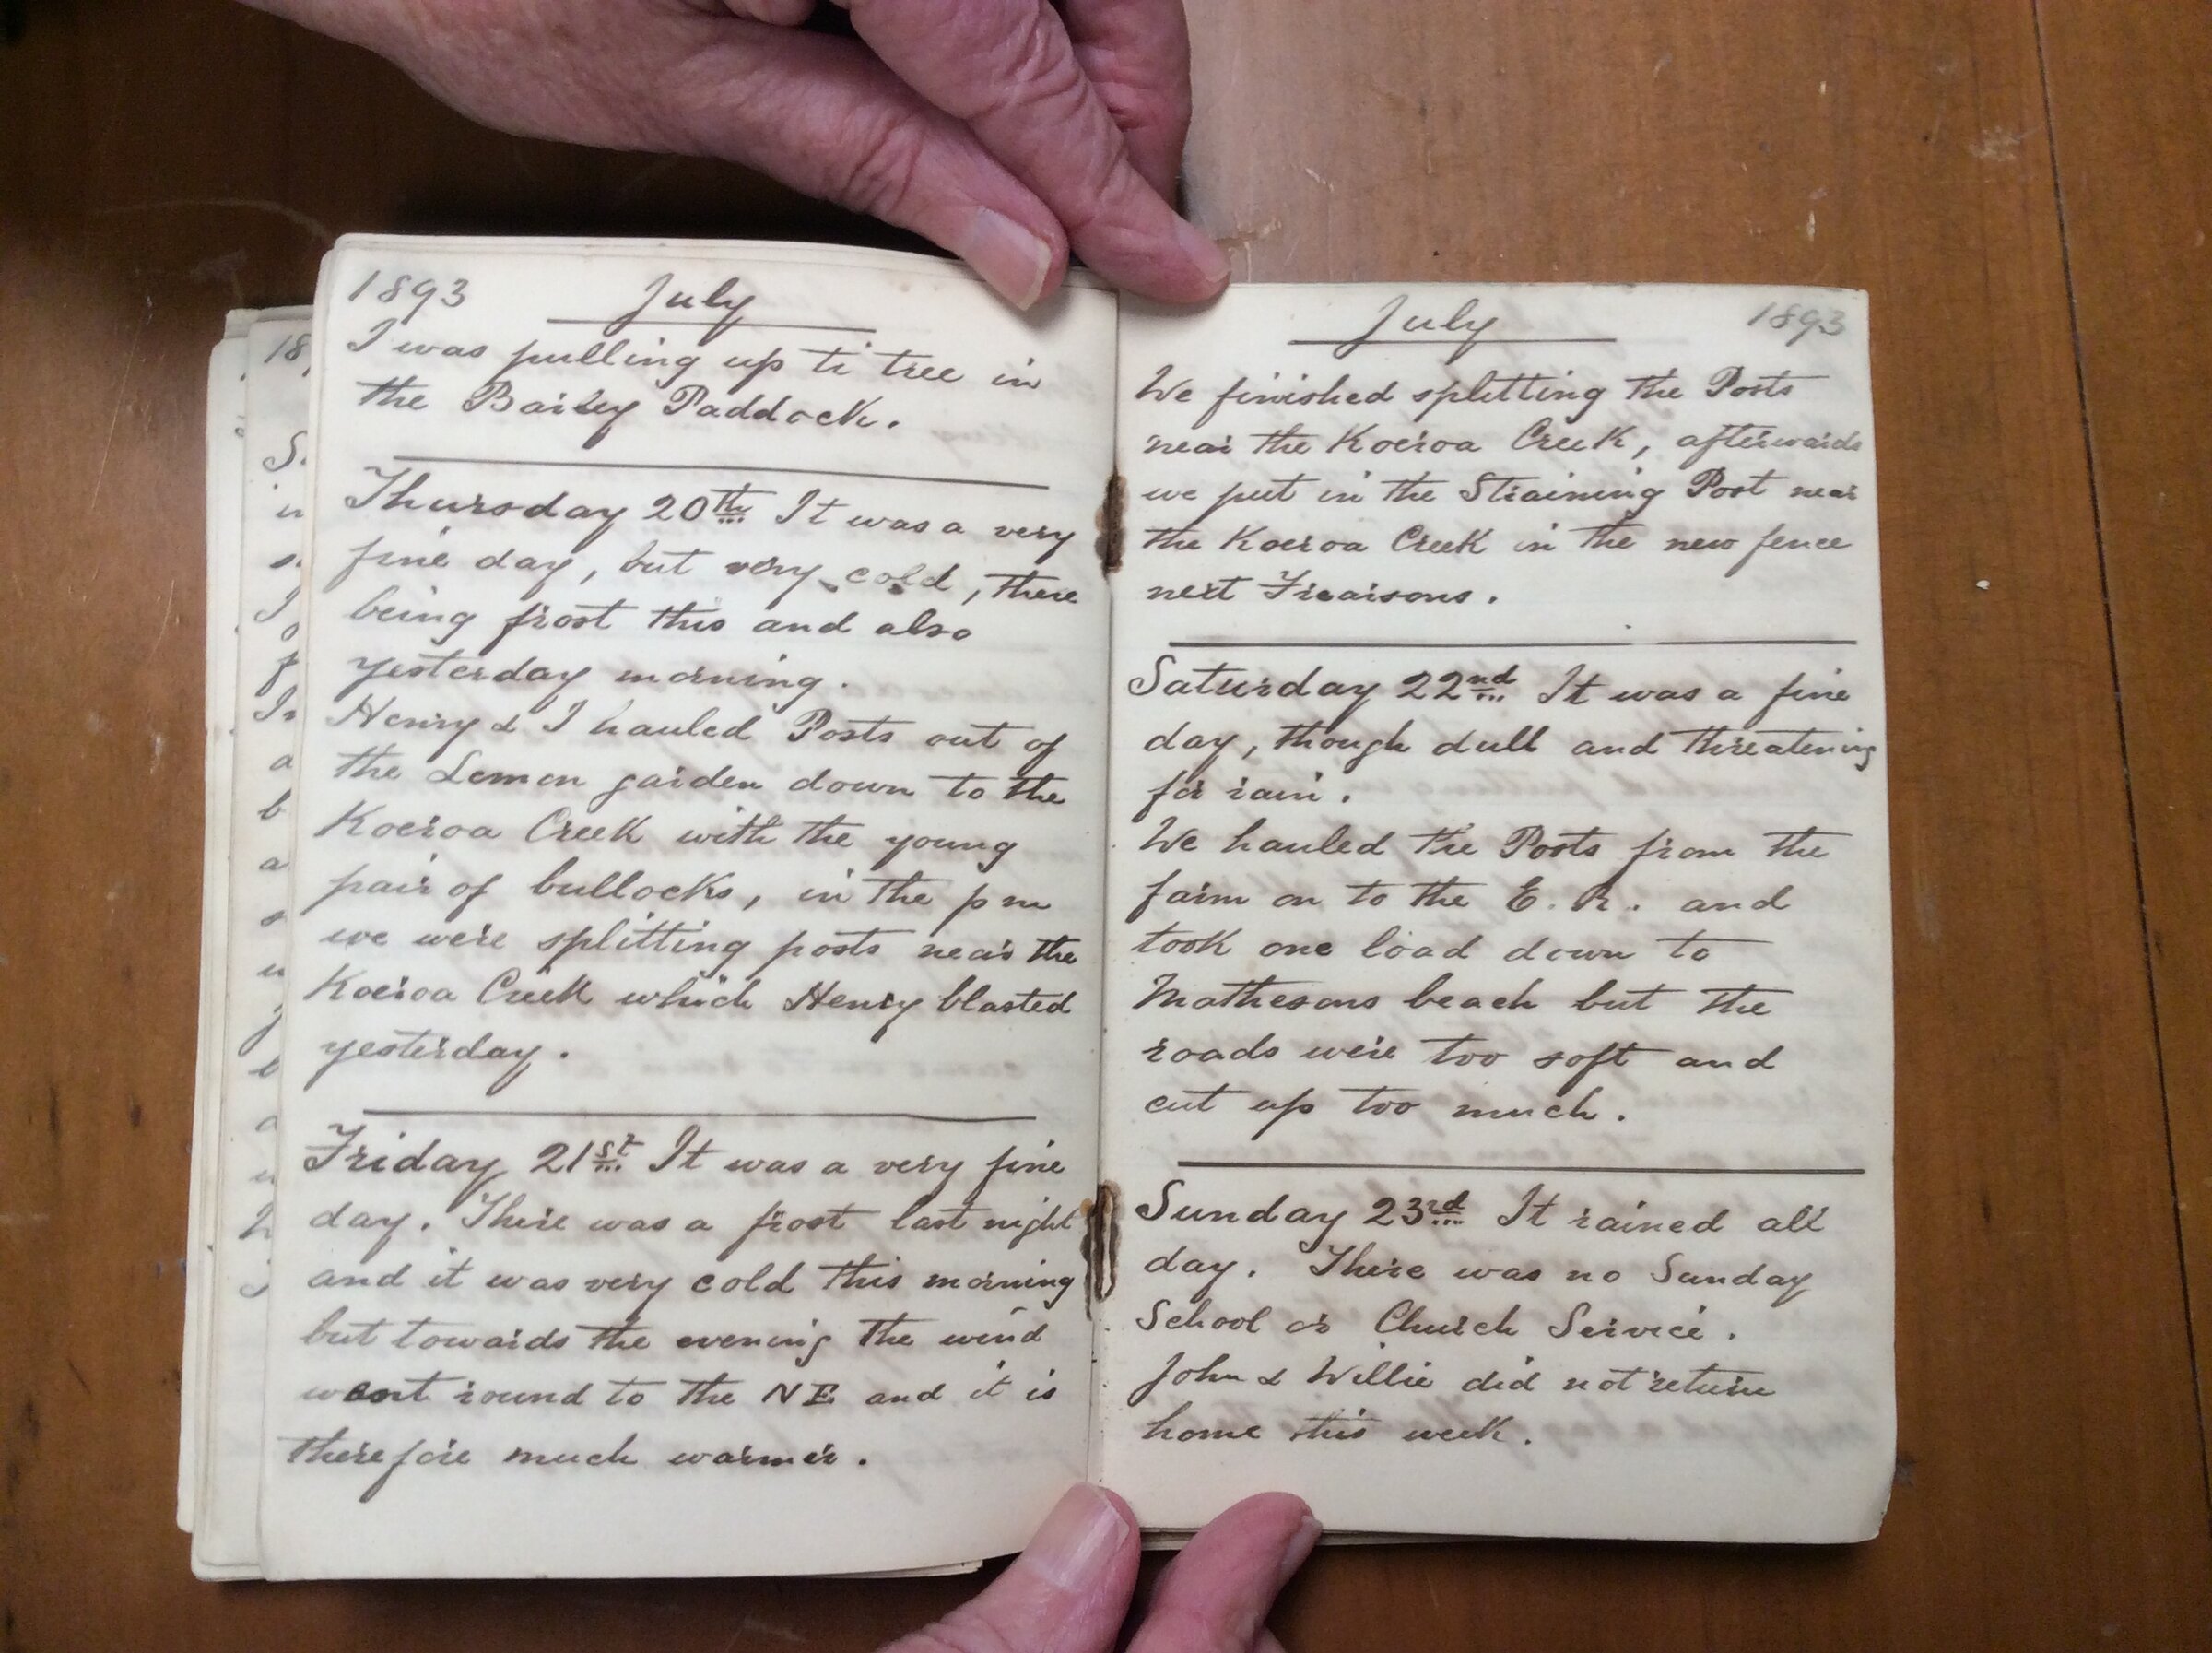 1893 July
I was pulling up ti tree in
the Bailey Paddock.
Thursday 20th It was a very
fine day, but very cold, there
being frost this and also
yesterday morning.
Henry & I hauled Posts out of
the Lemon garden down to the
Koeroa Creek with the young
pair of bullocks, in the pm
we were splitting posts near the
Koeroa Creek which Henry blasted
yesterday.
Friday 21st It was a very fine
day. There was a frost last night
and it was very cold this morning
but towards the evening the wind
went round to the NE and it is
therefore much warmer.
July 1893
We finished splitting the Posts
near the Koeroa Creek, afterwards
we put in the Straining Post near
the Koeroa Creek in the new fence
next
Saturday 22nd It was a fine
day, though dull and threatening
for rain.
We hauled the Posts from the
farm on to the E. R. and
took one load down to
Mathesons beach but the
roads were too soft and
cut up too much.
Sunday 23rd It rained all
day. There was no Sunday
School or Church Service.
John & Willie did not return
home this week.